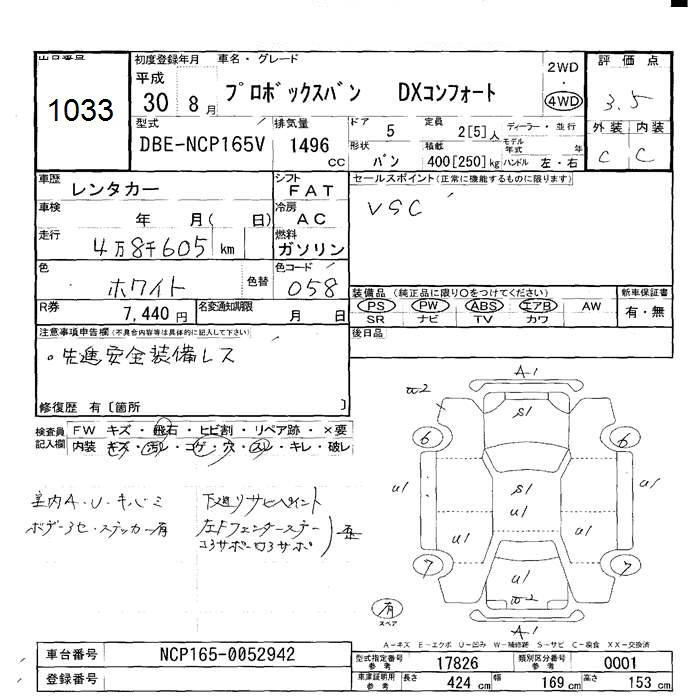 出品番号
1033
初度登録年月 車名・グレード
平成 30 8月
プロボックスバン DXコンフォート
2WD
4WD
評価点
3.5
外装 内装
C C
型式
DBE-NCP165V
排気量
1496 CC
ドア 5
定員 2[5]人
ディーラー・並行
形状 バン
積載 400[250]kg
モデル年式 年
ハンドル 左・右
車歴
レンタカー
シフト
FAT
車検 年 月( 日)
冷房
AC
走行
4万8千605 km
燃料
ガソリン
色
ホワイト
色替
色コード
058
R券
7,440円
名変通知期限 月 日
セールスポイント(正常に機能するものに限ります)
VSC
装備品(純正品に限り〇をつけてください)
PS PW ABS エアB AW
SR ナビ TV カワ
新車保証書
有・無
後日品
注意事項申告欄(不具合内容等は具体的に記入して下さい)
・先進安全装備レス
修復歴 有〔箇所 〕
検査員記入欄
FW キズ・飛石・ヒビ割・リペア跡・×要
内装 キズ・汚レ・コゲ・穴・スレ・キレ・破レ
室内A・U・キバミ
ボデー3セ・ステッカー有
下廻リサビペイント
A1
S1
6 6
U1 S1 U1
U1 U1 U1
7 7
U1
A1
有
スペア
A-キズ E-エクボ U-凹み W-補修跡 S-サビ C-腐食 XX-交換済
車台番号
NCP165-0052942
登録番号
型式指定番号 参考
17826
類別区分番号 参考
0001
車庫証明用 参考
長さ 424 cm 幅 169 cm 高さ 153 cm